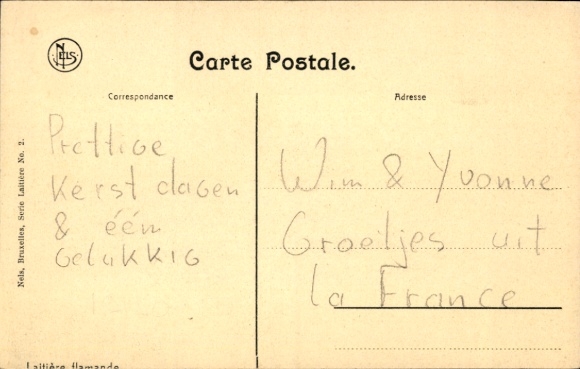 NELS
Carte Postale.
Correspondance
Adresse
Prettige
Kerst dagen
& één
Gelukkig
Wim & Yvonne
Groetjes uit
la France
Nels, Bruxelles, Serie Laitière No. 2.
Laitière flamande